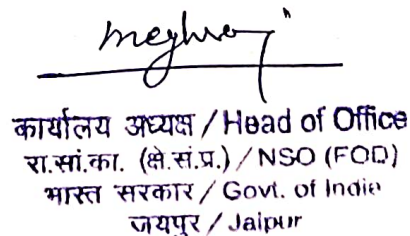 meghraj
कार्यालय अध्यक्ष / Head of Office
रा.सां.का. (क्षे.सं.प्र.) / NSO (FOD)
भारत सरकार / Govt. of India
जयपुर / Jaipur